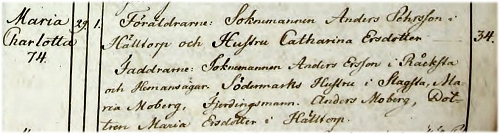 Maria Charlotta 74. 29. 1.
Föräldrarne: Soknemannen Anders Pehrsson i
Hälltorp och Hustru Catharina Ersdotter 34.
Faddrarne: Soknemannen Anders Ersson i Råcksta
och Hemansägar. Södermarks Hustru i Stagsta, Ma-
ria Moberg, Fjerdingsmann. Anders Moberg, Dot-
tren Maria Ersdotter i Hälltorp.